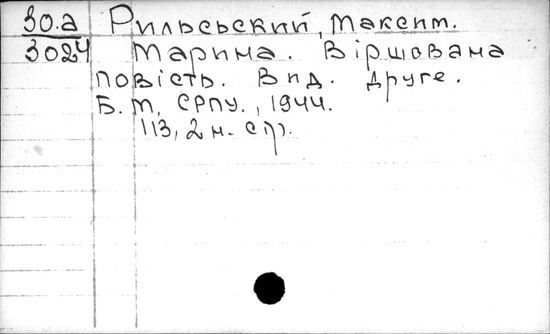 30.а Рильський, Максим.
3024 Марина. Віршована
повість. Вид. друге.
Б. М, СРПУ., 1944.
113, 2 н. ст.